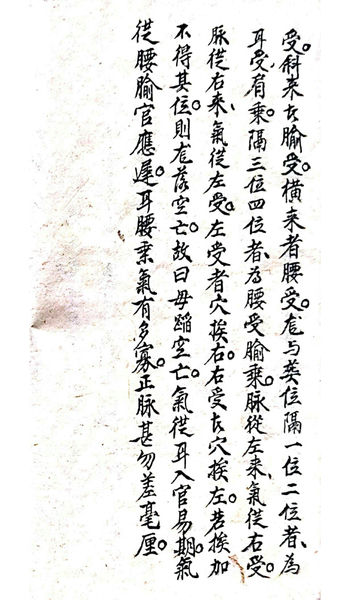 受。斜来者腧受。横来者腰受。龙与葬位隔一位二位者、为
耳受肩乘。隔三位四位者、为腰受腧乘。脉從左来、氣從右受。
脉從右来、氣從左受。左受者穴挨右。右受者穴挨左。若挨加
不得其位。则龙落空亡。故曰毋蹈空亡。氣從耳入官易期。氣
從腰腧官應遲。耳腰乘氣有多寡。正脉甚勿差毫厘。